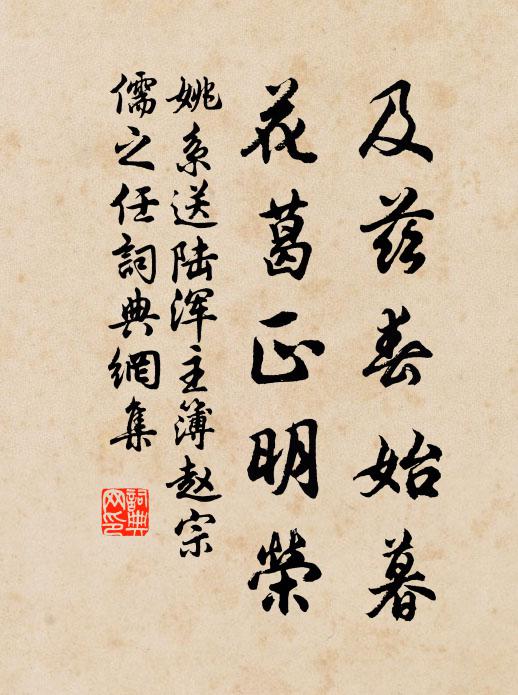 及兹春始暮
花葛正明榮
姚系送陆浑主簿赵宗
儒之任詞典網集
詞典网印